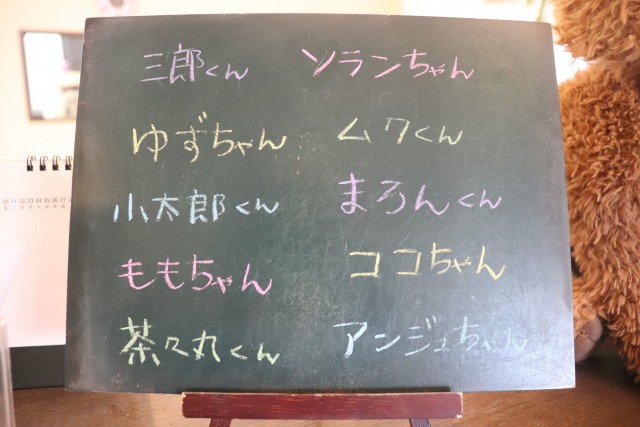 三郎くん ソランちゃん
ゆずちゃん ムクくん
小太郎くん まろんくん
ももちゃん ココちゃん
茶々丸くん アンジュちゃん